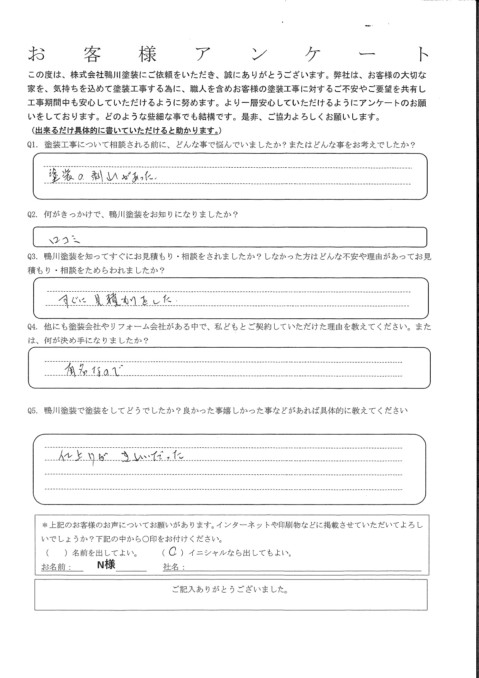 お客様アンケート
この度は、株式会社鴨川塗装にご依頼をいただき、誠にありがとうございます。弊社は、お客様の大切な
家を、気持ちを込めて塗装工事する為に、職人を含めお客様の塗装工事に対するご不安やご要望を共有し
工事期間中も安心していただけるように努めます。より一層安心していただけるようにアンケートのお願
いをしております。どのような些細な事でも結構です。是非、ご協力よろしくお願いします。
（出来るだけ具体的に書いていただけると助かります。）
Q1. 塗装工事について相談される前に、どんな事で悩んでいましたか？またはどんな事をお考えでしたか？
塗装の剥れがあった.
Q2. 何がきっかけで、鴨川塗装をお知りになりましたか？
口コミ
Q3. 鴨川塗装を知ってすぐにお見積もり・相談をされましたか？しなかった方はどんな不安や理由があってお見
積もり・相談をためらわれましたか？
すぐに見積もりをした.
Q4. 他にも塗装会社やリフォーム会社がある中で、私どもとご契約していただけた理由を教えてください。また
は、何が決め手になりましたか？
有名なので
Q5. 鴨川塗装で塗装をしてどうでしたか？良かった事嬉しかった事などがあれば具体的に教えてください
仕上りが きれいだった
＊上記のお客様のお声についてお願いがあります。インターネットや印刷物などに掲載させていただいてよろし
いでしょうか？下記の中から○印をお付けください。
（　）名前を出してよい。（○）イニシャルなら出してもよい。
お名前： N様 社名：
ご記入ありがとうございました。